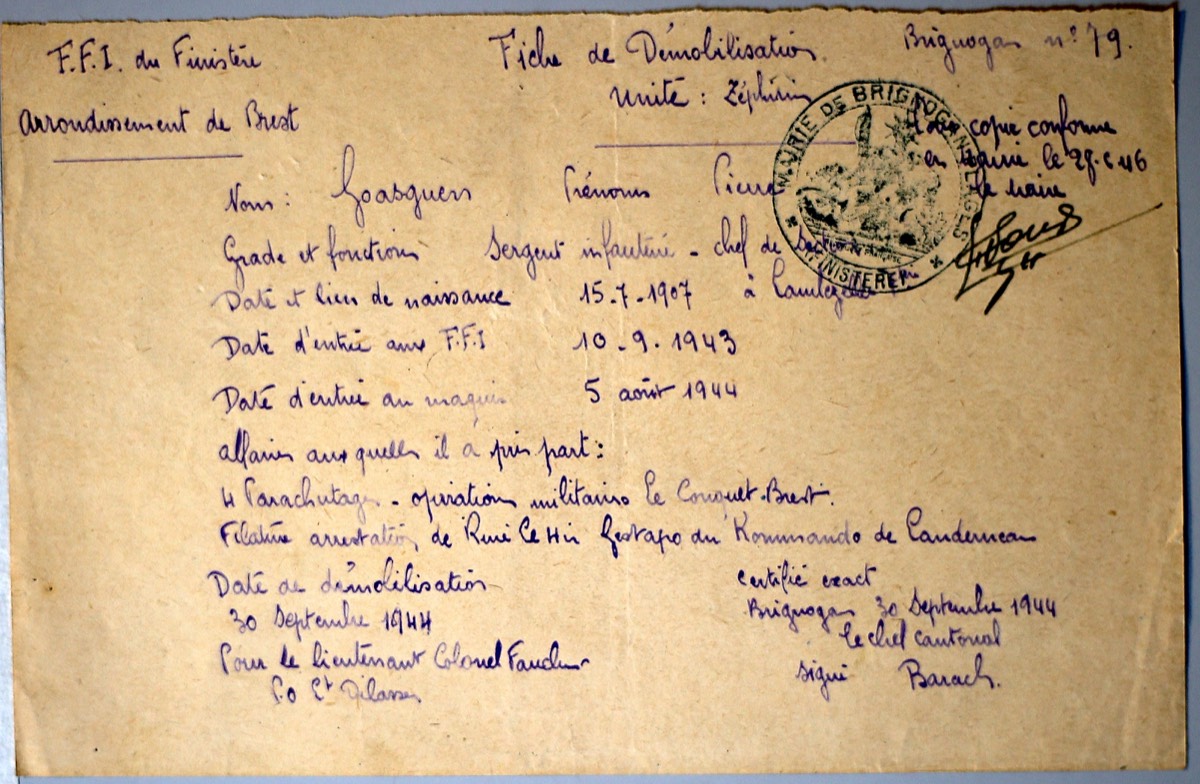 F.F.I. du Finistère
Fiche de Démobilisation
Brignogan n° 79.
Arrondissement de Brest
Unité : Zéphirin
MAIRIE DE BRIGNOGAN-PLAGES
* FINISTERE *
copie conforme
en mairie le 29-5 46
le maire
Nom : Goasguen Prénoms Pierre
Grade et fonction Sergent infanterie - chef de
Date et lieu de naissance 15-7-1907 à
Date d'entrée aux F.F.I 10-9-1943
Date d'entrée au maquis 5 août 1944
affaires auxquelles il a pris part :
4 Parachutages - opérations militaires Le Conquet-Brest.
Filature arrestation de René Le Hir Gestapo du Kommando de Landerneau
Date de démobilisation
30 Septembre 1944
Pour le lieutenant Colonel Faucher
P.O Lt Dilasser
certifié exact
Brignogan 30 Septembre 1944
Le chef cantonal
signé Barach.